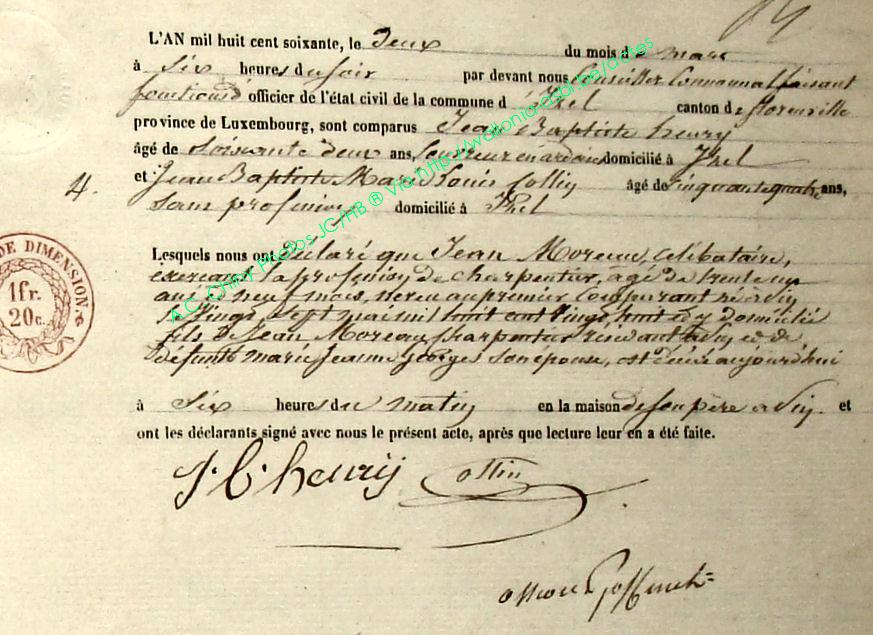 L'AN mil huit cent soixante, le deux du mois de mars
à six heures du soir par devant nous Conseiller Communal faisant
fonctions d' officier de l'état civil de la commune d' Izel canton de florenville
province de Luxembourg, sont comparus Jean Baptiste henry
âgé de soisante deux ans, domicilié à Izel
4.
et Jean Baptiste Marie Louis Collin âgé de cinquante quatre ans,
sans profession domicilié à Izel
DE DIMENSION.
1 fr.
20 c.
Lesquels nous ont déclaré que Jean Moreau, célibataire,
exerçant la profession de charpentier, âgé de trente un
ans et neuf mois, neveu au premier Comparant né à
le vingt sept mai mil huit cent vingt huit et y domicilié
fils de Jean Moreau Charpentier résidant à et de
défunte marie Jeanne georges son épouse, est décédé aujourd'hui
à six heures du matin en la maison de son père à et
ont les déclarants signé avec nous le présent acte, après que lecture leur en a été faite.
J. B. henry Collin
A.C. Chiny Photos JC/HB ® Via http://wallonia-asbl.be/actes